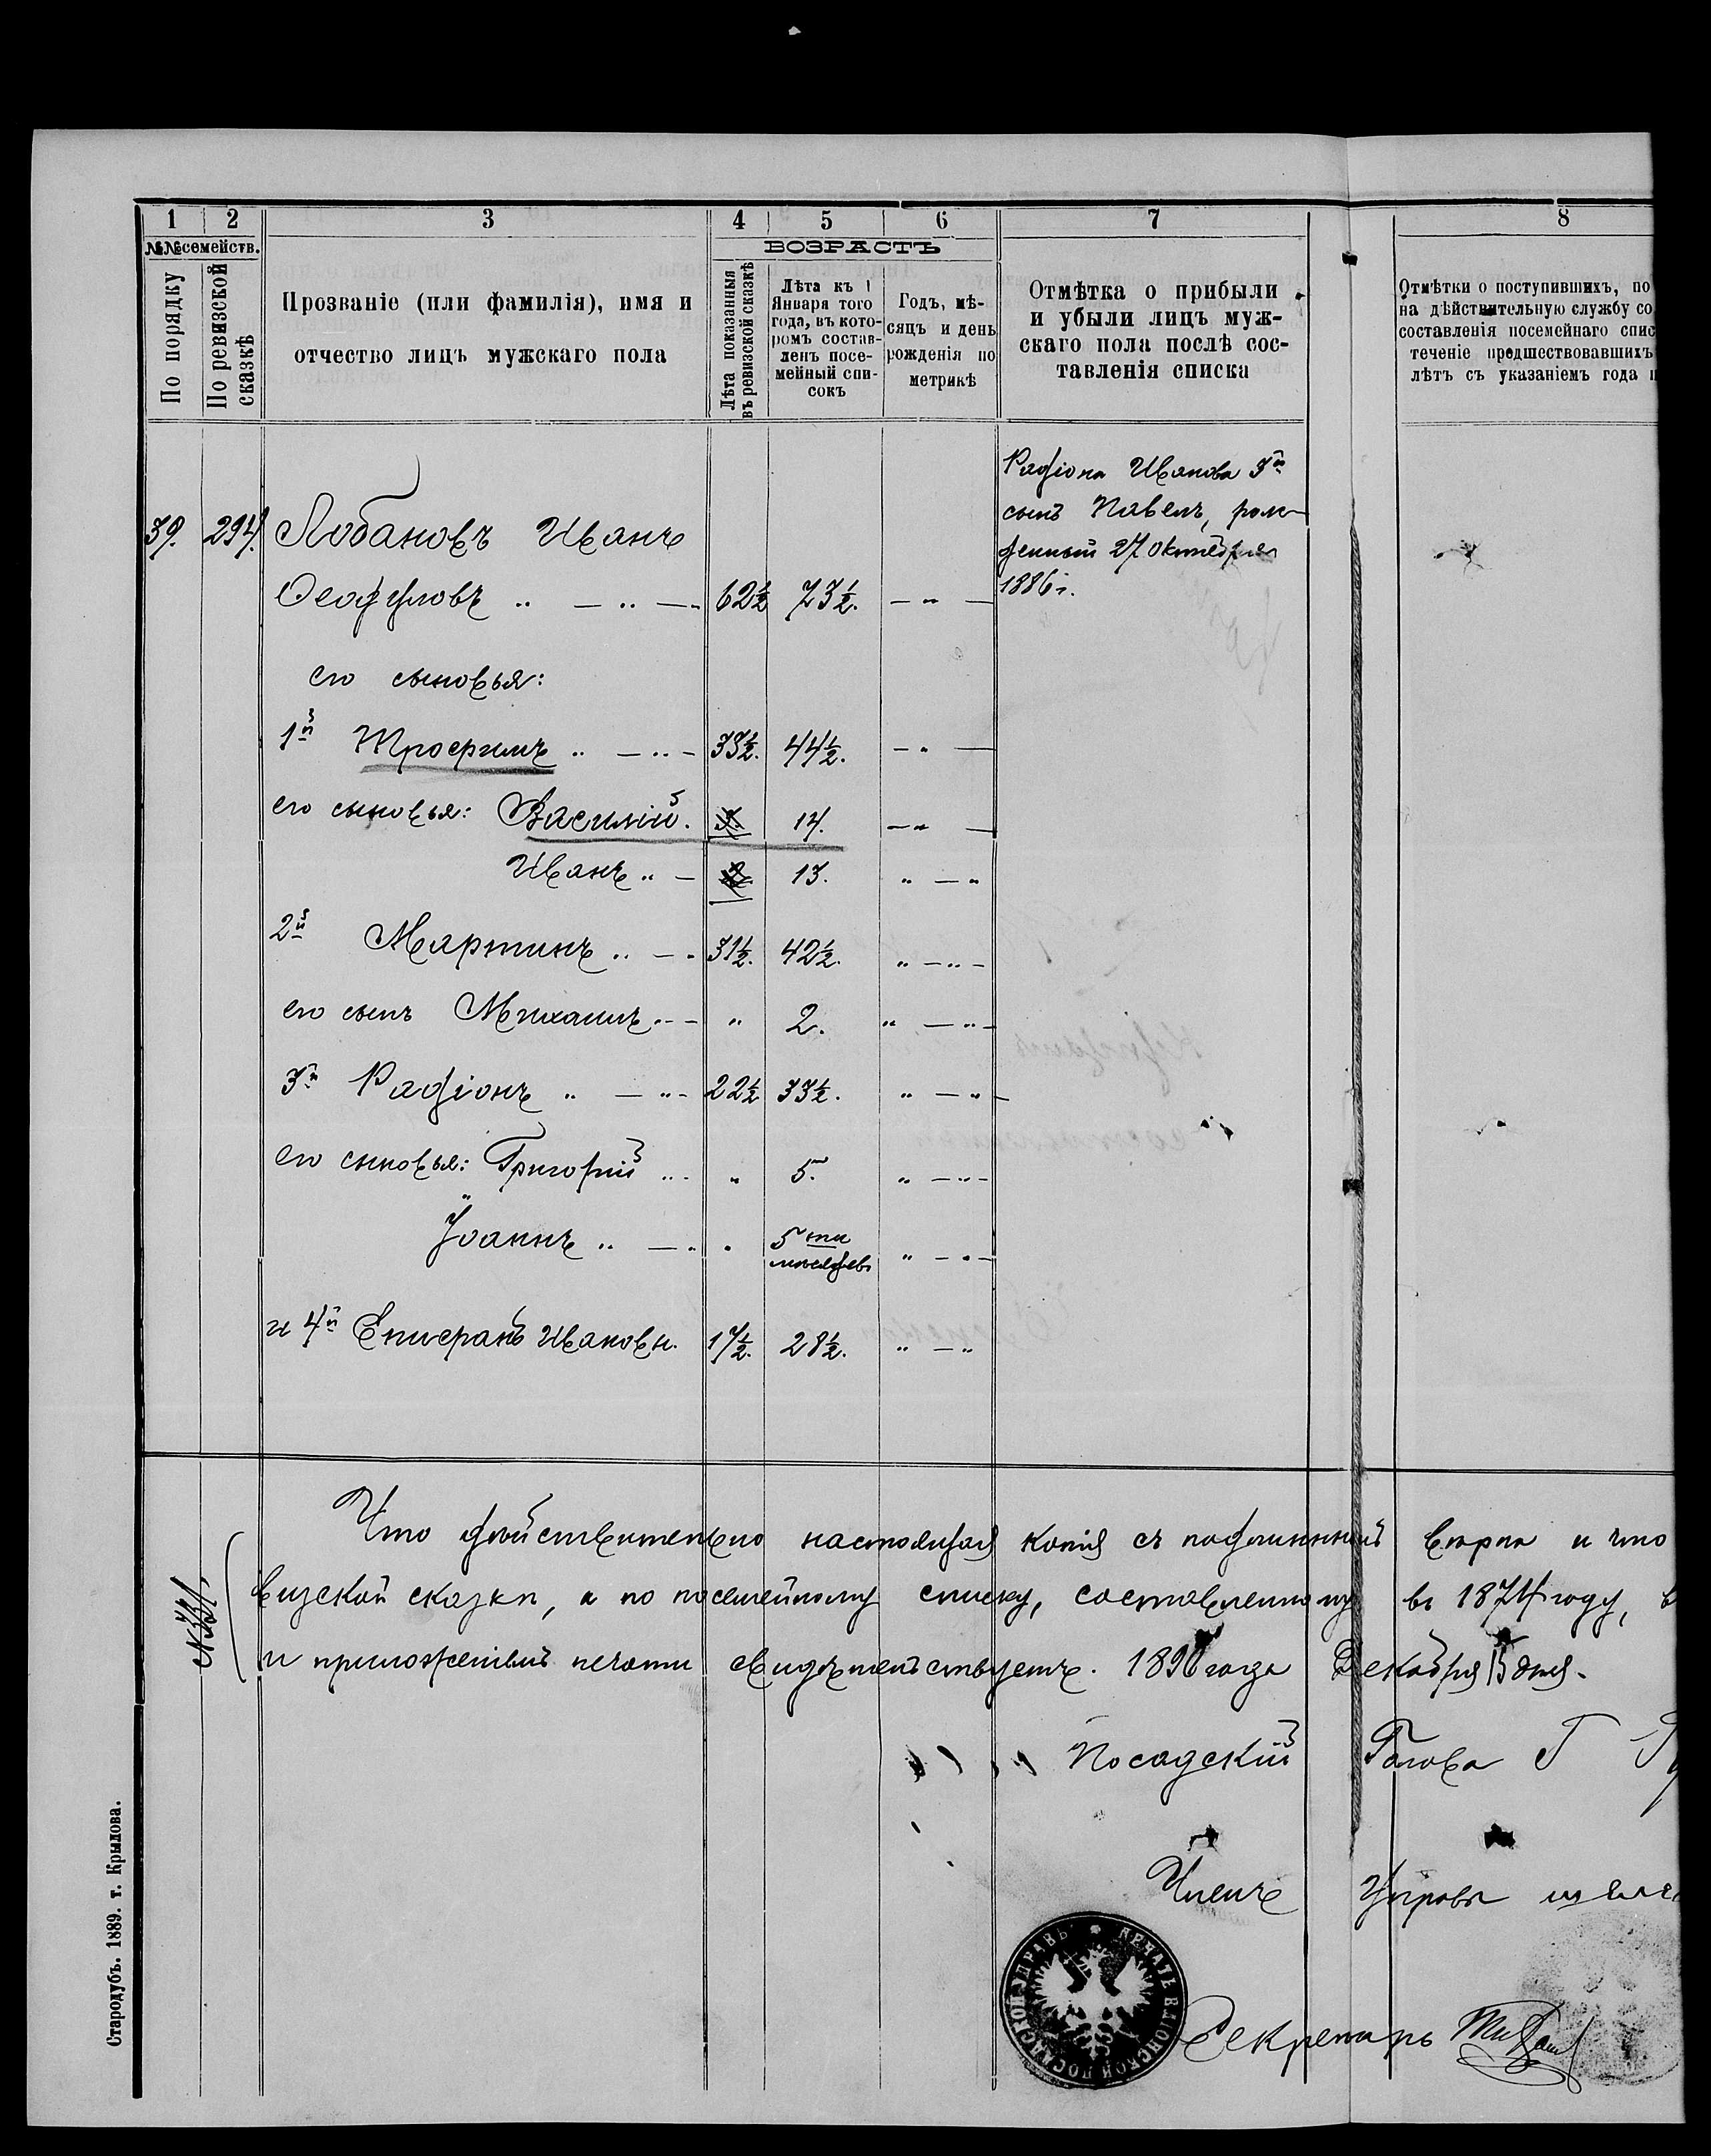 1 2 3 4 5 6 7 8
№№ семействъ.
По порядку
По ревизской сказкѣ
Прозваніе (или фамилія), имя и
отчество лицъ мужскаго пола
ВОЗРАСТЪ
Лѣта показанныя
въ ревизской сказкѣ
Лѣта къ 1
Января того
года, въ кото-
ромъ состав-
ленъ посе-
мейный спи-
сокъ
Годъ, мѣ-
сяцъ и день
рожденія по
метрикѣ
Отмѣтка о прибыли
и убыли лицъ муж-
скаго пола послѣ сос-
тавленія списка
Отмѣтки о поступившихъ, по
на дѣйствительную службу со
составленія посемейнаго спис
теченіе предшествовавшихъ
лѣтъ съ указаніемъ года и
Радіона Иванова 3й
сынъ Павелъ, рож-
денный 27 октября
1886 г.
39. 294. Лобановъ Иванъ
Феодуловъ 62½ 73½.
его сыновья:
1й Трофимъ 33½. 44½.
его сыновья: Василій. 3. 14.
Иванъ 2 13.
2й Мартинъ 31½. 42½.
его сынъ Михаилъ 2.
3й Радіонъ 22½ 33½.
его сыновья: Григорій 5.
Іоаннъ 5ти
мѣсяцевъ
и 4й Епифанъ Ивановы. 17½. 28½.
Что дѣйствительно настоящая копія съ подлиннымъ вѣрна и что
визской сказки, а по посемейному списку, составленному въ 1874 году, в
и приложеніемъ печати свидѣтельствуетъ. 1890 года Декабря 15 дня.
Посадскій Голова Г
Членъ Управы
ПЕЧАТЬ КЛІОНСКОЙ ПОСАДСКОЙ УПРАВЫ
Секретарь
Стародубъ. 1889. т. Крылова.